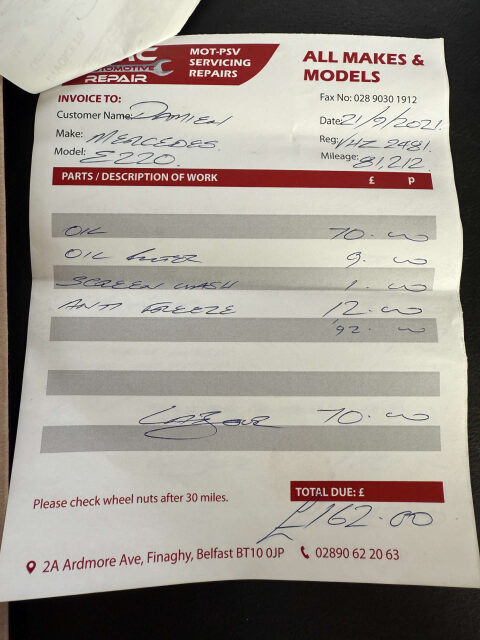 MOT-PSV
SERVICING
REPAIRS
AUTOMOTIVE
REPAIR
ALL MAKES &
MODELS
INVOICE TO:
Fax No: 028 9030 1912
Customer Name: Damien
Date: 21/9/2021
Make: MERCEDES
Reg: VHZ 2481
Model: E220.
Mileage: 81,212
PARTS / DESCRIPTION OF WORK £ P
OIL 70.00
OIL FILTER 9.00
SCREEN WASH 1.00
ANTI FREEZE 12.00
92.00
LABOUR 70.00
Please check wheel nuts after 30 miles.
TOTAL DUE: £
£162.00
2A Ardmore Ave, Finaghy, Belfast BT10 0JP 02890 62 20 63